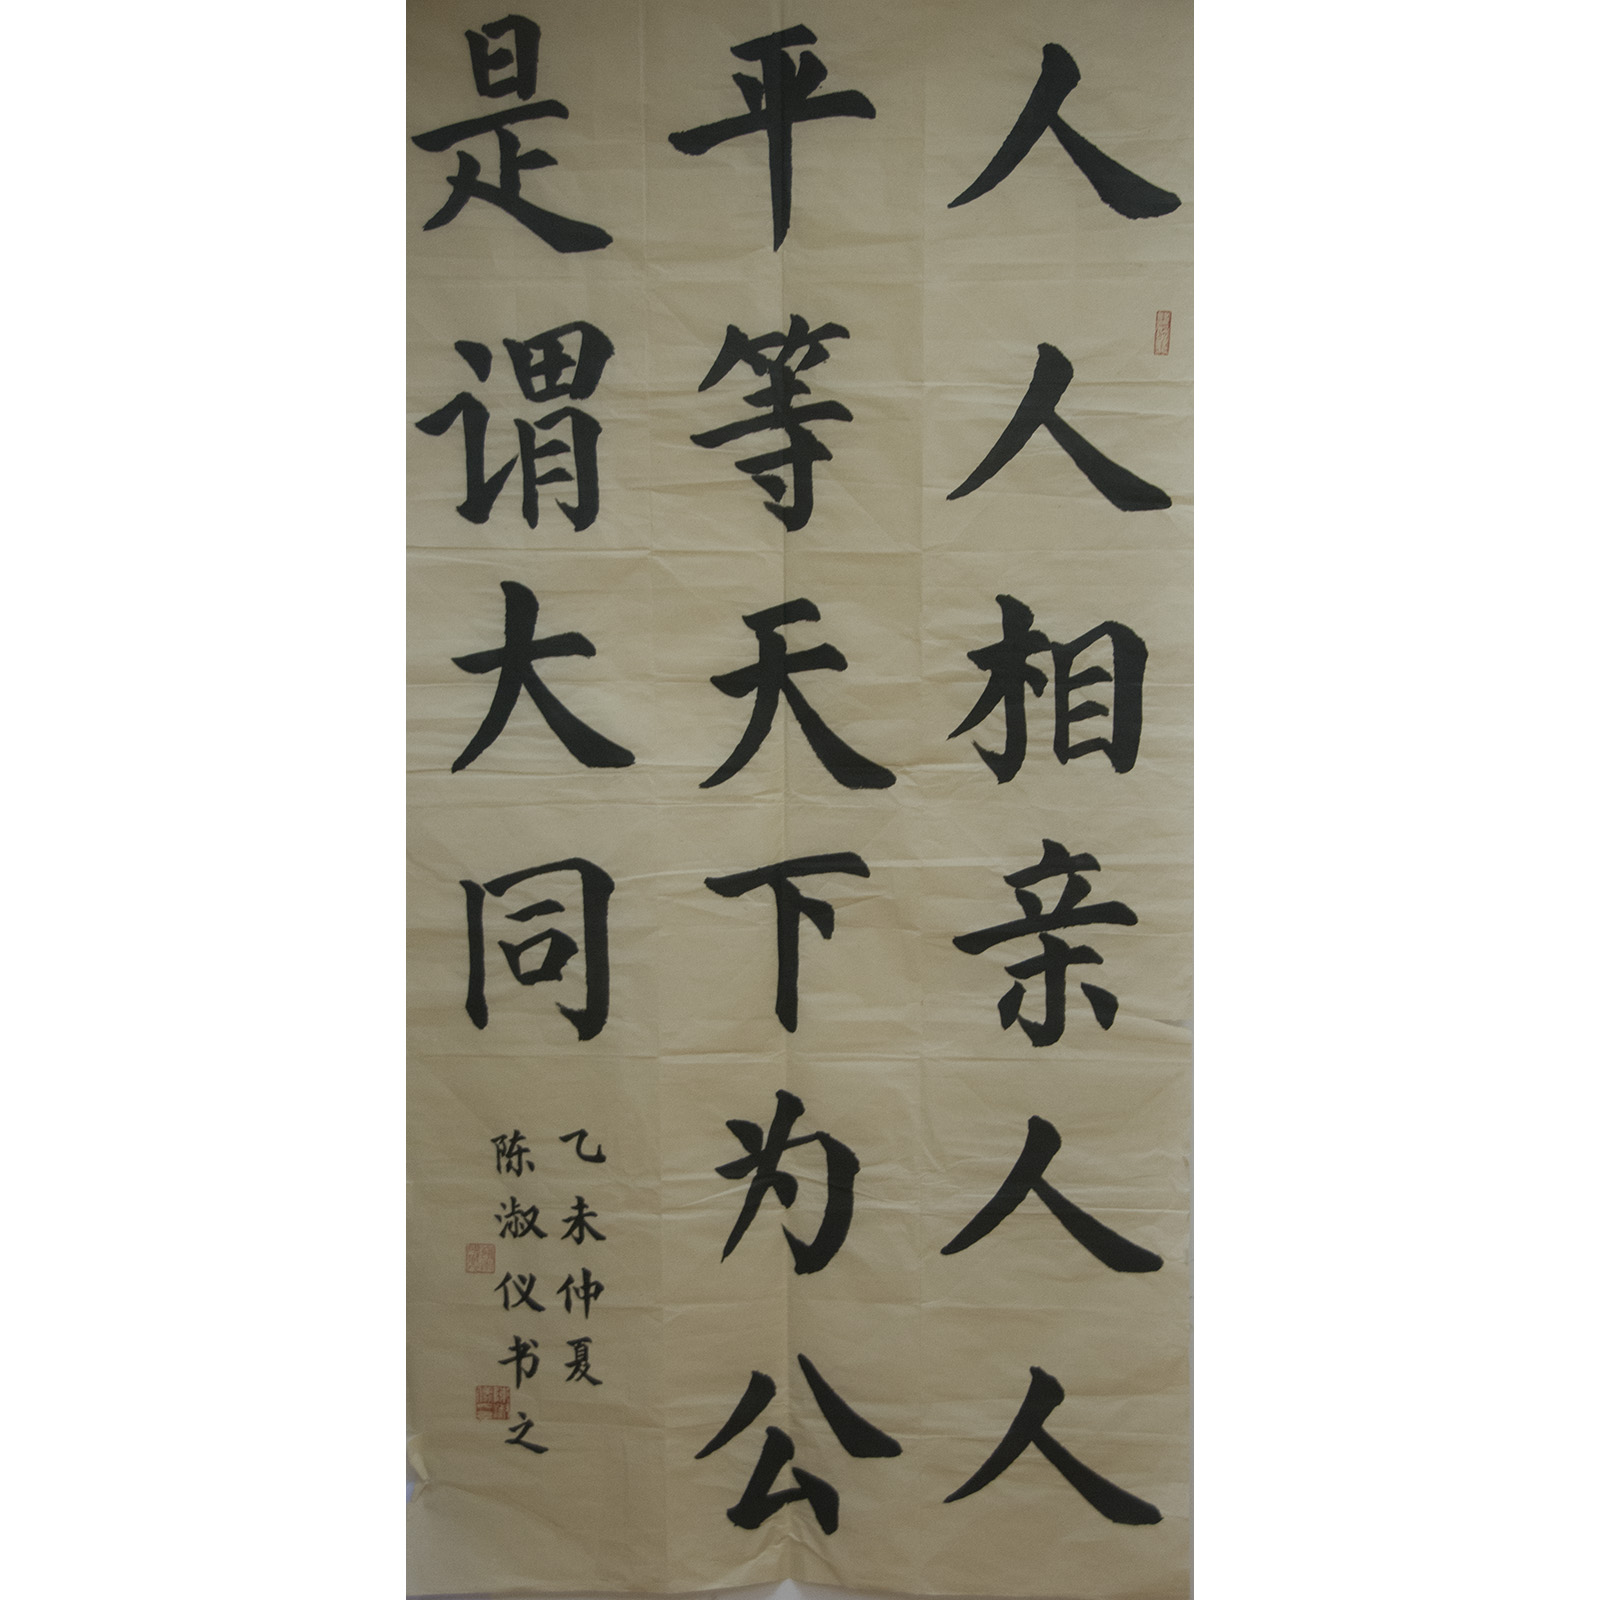 人人相亲人人
平等天下为公
是谓大同
乙未仲夏
陈淑仪书之